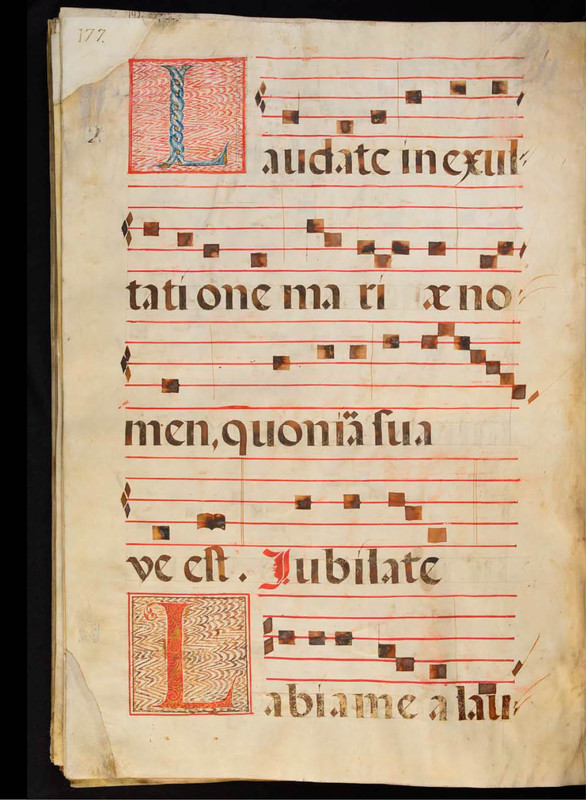 177.
2.
Laudate in exul-
tati one ma ri æ no-
men, quoniā sua
ve est. Iubilate
Labia me a lau-